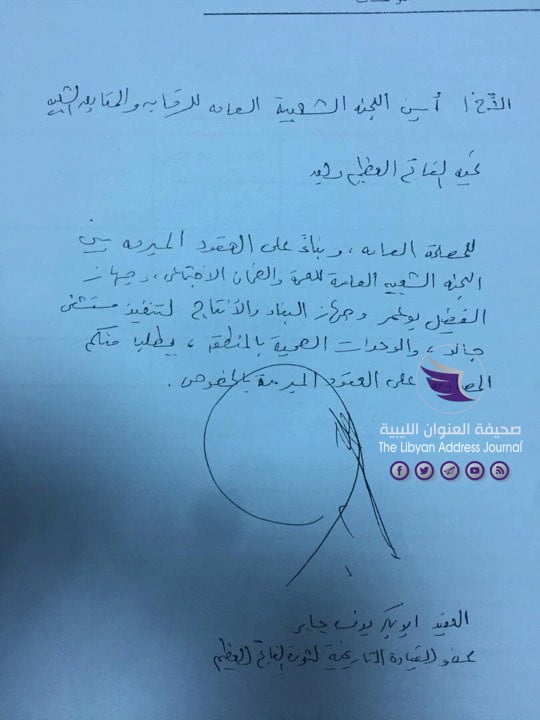 الأخ / أمين اللجنة الشعبية العامه للرقابه والمتابعه الشعبيه
تحيه الفاتح العظيم وبعد
للمصلحة العامه، وبناءً على العقود المبرمه بين
اللجنه الشعبيه العامة للصحة والضمان الاجتماعى، وجهاز
الفضيل بوعمر وجهاز البناء والانتاج لتنفيذ مستشفى
جالو، والوحدات الصحية بالمنطقه، يطلب منكم
على العقود المبرمة بالخصوص.
صحيفة العنوان الليبية
The Libyan Address Journal
العقيد ابوبكر يونس جابر
عضو القيادة التاريخية لثورة الفاتح العظيم